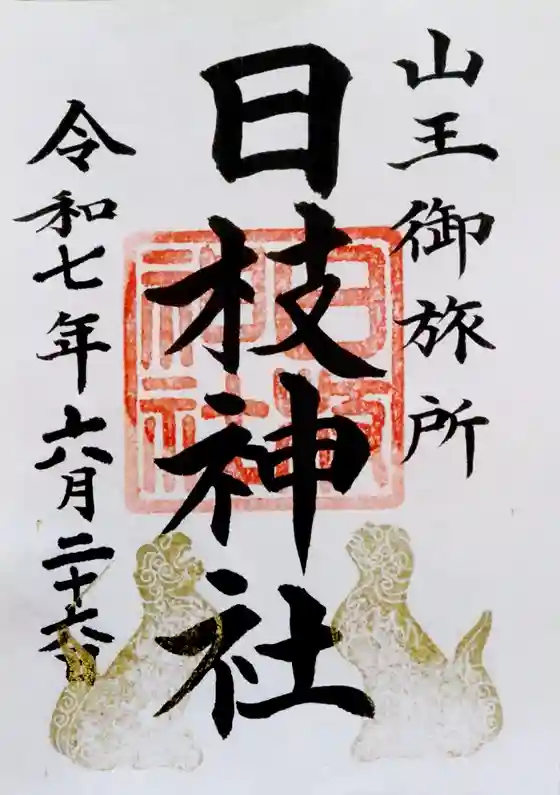 山王御旅所
日枝神社
令和七年六月二十六日
日枝神社